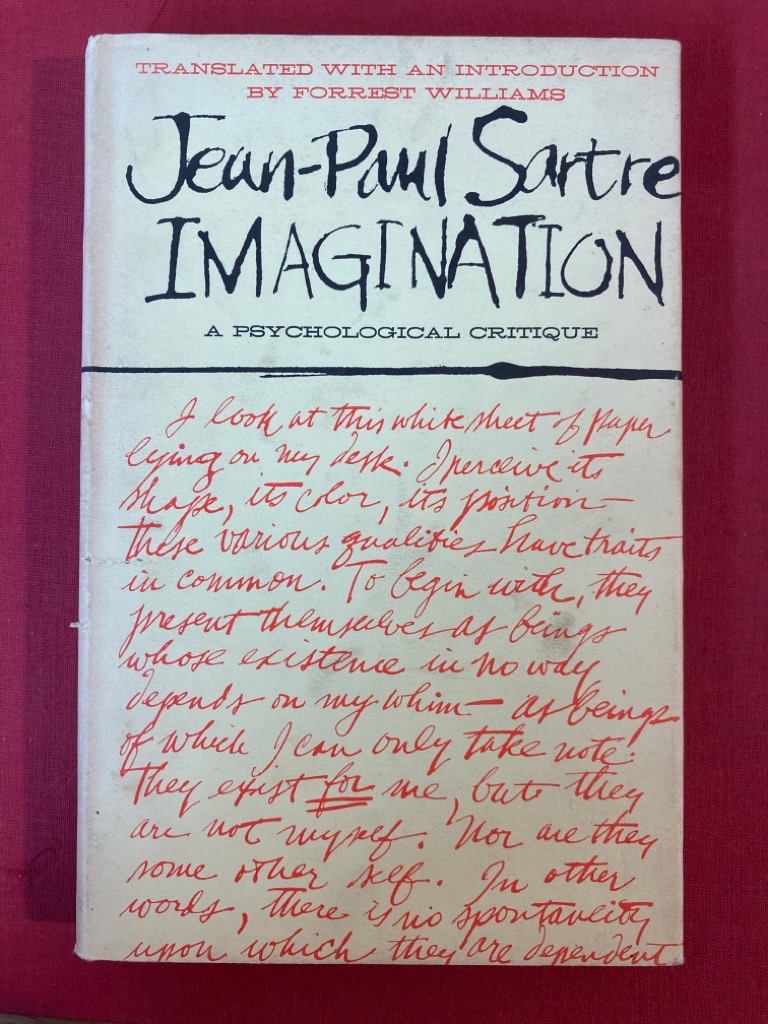 TRANSLATED WITH AN INTRODUCTION
BY FORREST WILLIAMS
Jean-Paul Sartre
IMAGINATION
A PSYCHOLOGICAL CRITIQUE
I look at this white sheet of paper
lying on my desk. I perceive its
shape, its color, its position—
these various qualities have traits
in common. To begin with, they
present themselves as beings
whose existence in no way
depends on my whim— as beings
of which I can only take note.
They exist for me, but they
are not myself. Nor are they
some other self. In other
words, there is no spontaneity
upon which they are dependent